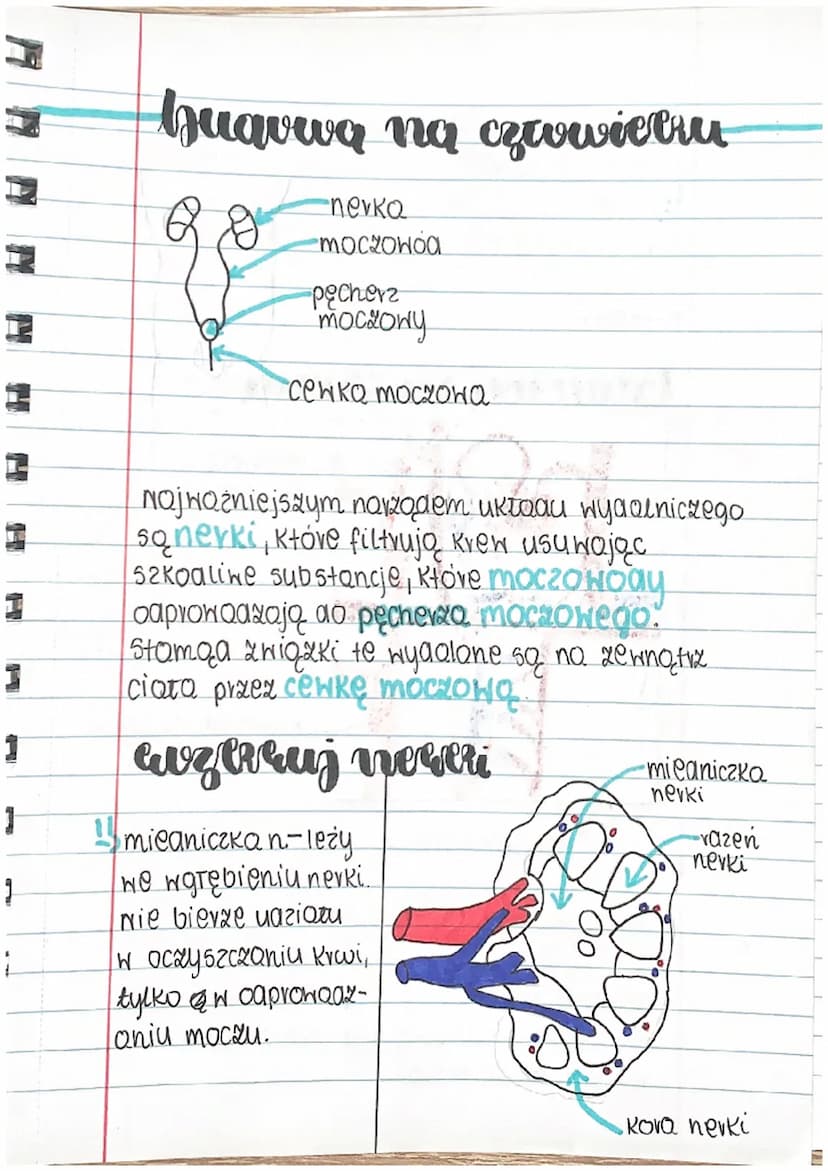 na człowieku
nerka
moczowód
pęcherz
moczowy
cewka moczowa
Najważniejszym narządem układu wydalniczego
są nerki, które filtrują krew usuwając
szkodliwe substancje, które moczowody
odprowadzają do pęcherza moczowego.
Stamąd związki te wydalane są na zewnątrz
ciała przez cewkę moczową.
nerki
miedniczka
nerki
rdzeń
nerki
!! miedniczka n.- leży
we wgłębieniu nerki.
nie bierze udziału
w oczyszczaniu krwi,
tylko w odprowadz-
aniu moczu.
kora nerki